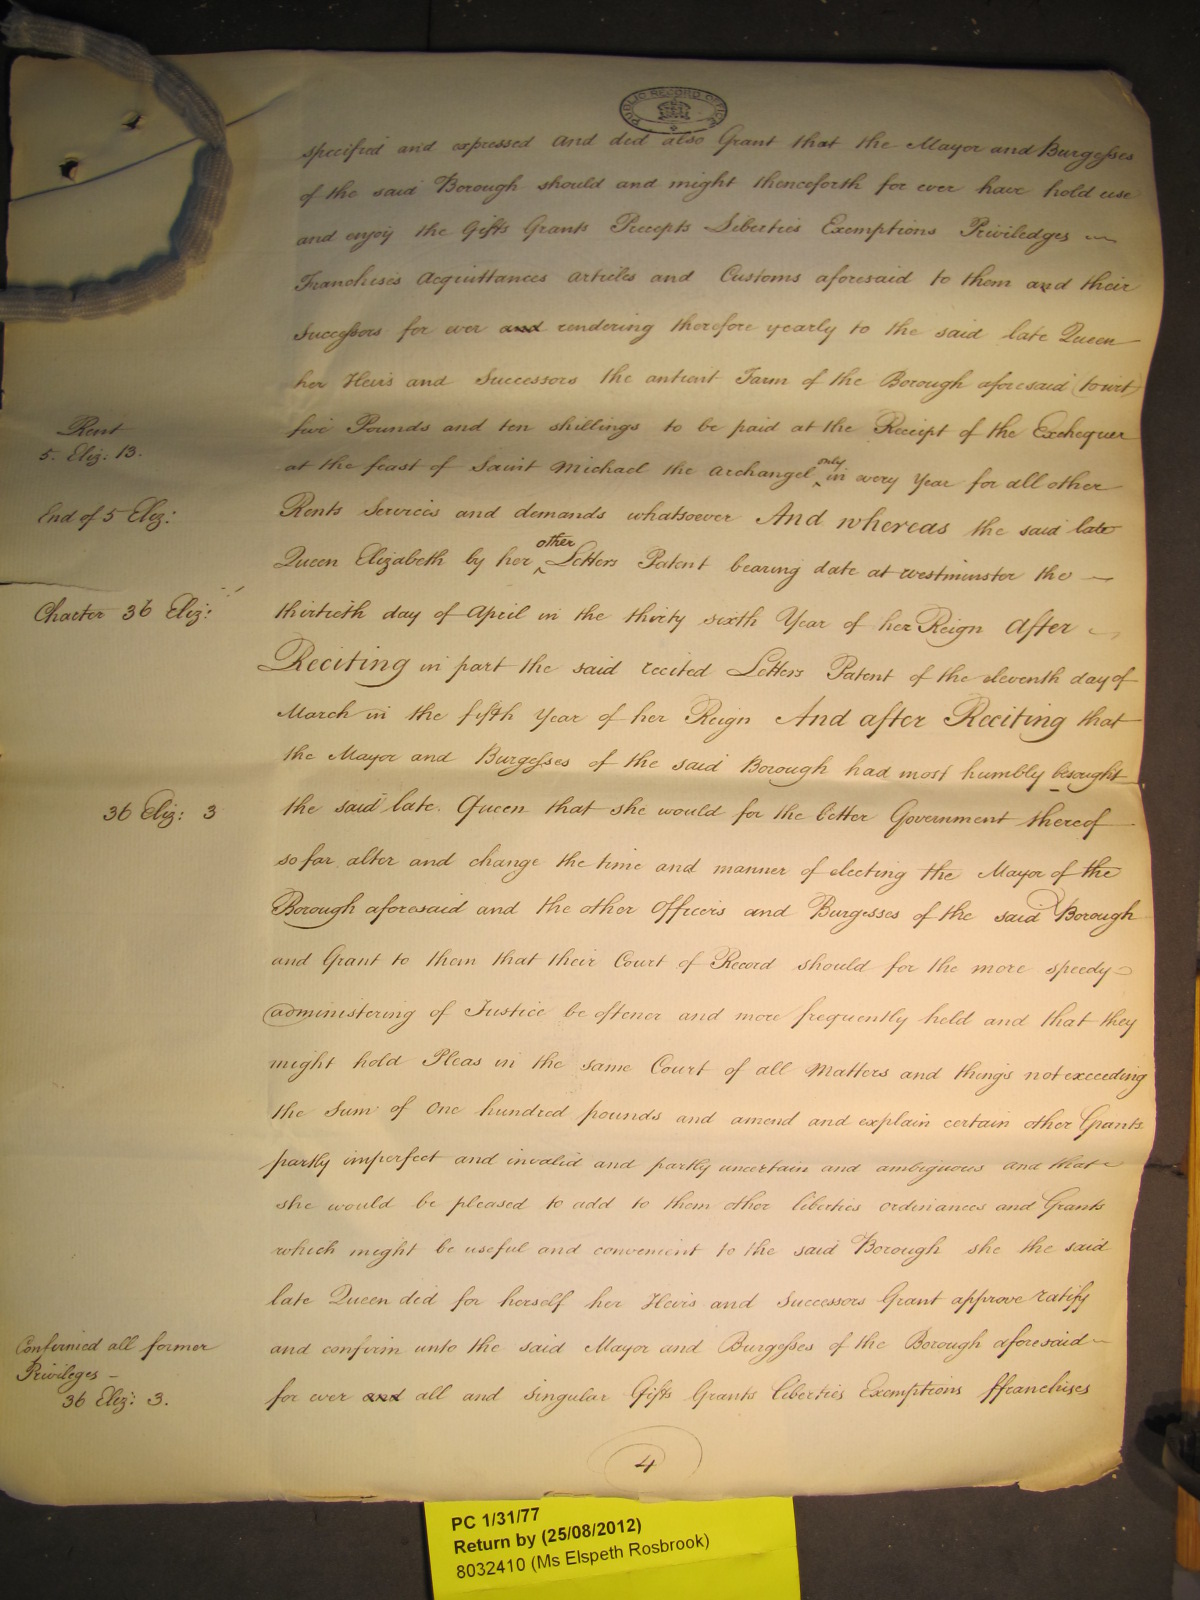 PUBLIC RECORD OFFICE
specified and expressed And did also Grant that the Mayor and Burgesses
of the said Borough should and might thenceforth for ever have hold use
and enjoy the Gifts Grants Precepts Liberties Exemptions Priviledges
Franchises Acquittances articles and Customs aforesaid to them and their
Successors for ever and rendering therefore yearly to the said late Queen
her Heirs and Successors the antient Farm of the Borough aforesaid (towit)
Rent
five Pounds and ten shillings to be paid at the Receipt of the Exchequer
5. Eliz: 13.
at the feast of Saint Michael the Archangel only in every Year for all other
End of 5 Eliz:
Rents Services and demands whatsoever And whereas the said late
Queen Elizabeth by her other Letters Patent bearing date at Westminster the
Charter 36 Eliz:
thirtieth day of April in the thirty sixth Year of her Reign After
Reciting in part the said recited Letters Patent of the eleventh day of
March in the fifth Year of her Reign And after Reciting that
the Mayor and Burgesses of the said Borough had most humbly besought
36 Eliz: 3
the said late Queen that she would for the better Government thereof
so far alter and change the time and manner of electing the Mayor of the
Borough aforesaid and the other Officers and Burgesses of the said Borough
and Grant to them that their Court of Record should for the more speedy
administering of Justice be oftener and more frequently held and that they
might hold Pleas in the same Court of all Matters and things not exceeding
the Sum of One hundred pounds and amend and explain certain other Grants
partly imperfect and invalid and partly uncertain and ambiguous and that
she would be pleased to add to them other liberties ordinances and Grants
which might be useful and convenient to the said Borough she the said
late Queen did for herself her Heirs and Successors Grant approve ratify
Confirmed all former
and confirm unto the said Mayor and Burgesses of the Borough aforesaid
Privileges -
36 Eliz: 3.
for ever and all and Singular Gifts Grants liberties Exemptions ffranchises
4
PC 1/31/77
Return by (25/08/2012)
8032410 (Ms Elspeth Rosbrook)